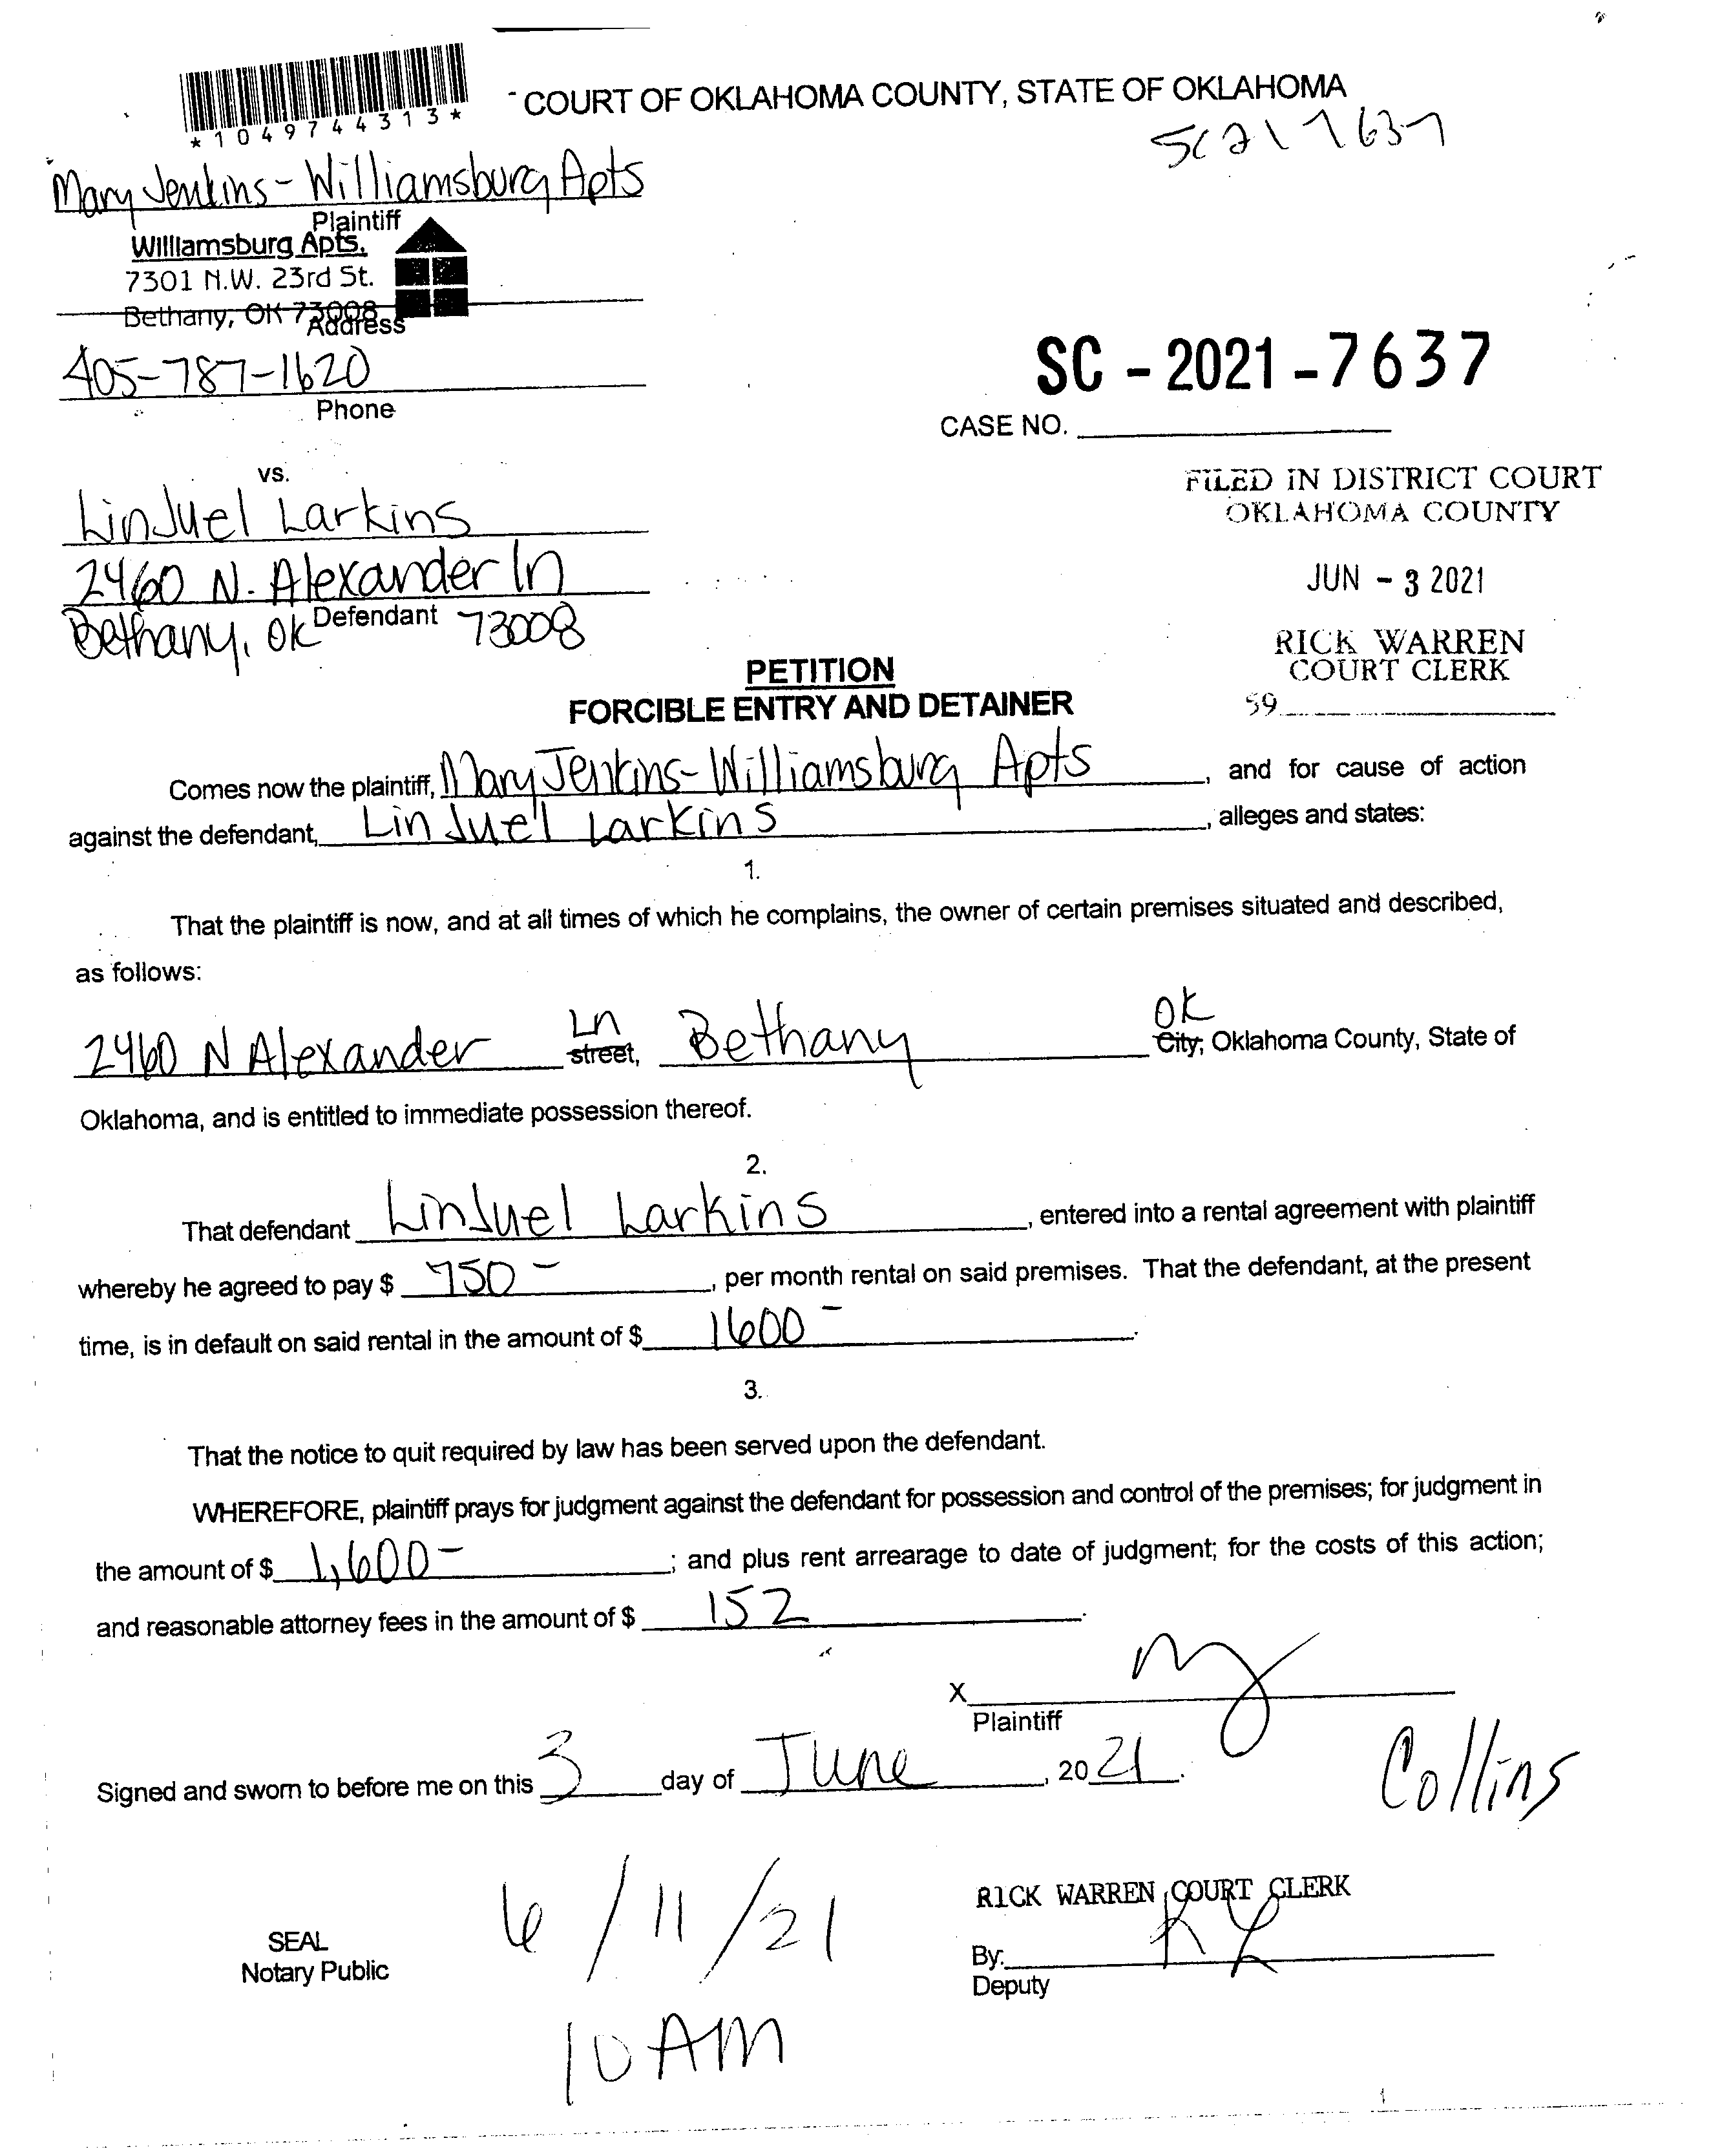 *1049744313*
COURT OF OKLAHOMA COUNTY, STATE OF OKLAHOMA
SC217637
Mary Jenkins - Williamsburg Apts
Plaintiff
Williamsburg Apts.
7301 N.W. 23rd St.
Bethany, OK 73008
Address
405-787-1620
Phone
SC - 2021 - 7637
CASE NO.
vs.
FILED IN DISTRICT COURT
OKLAHOMA COUNTY
LinJuel Larkins
2460 N. Alexander ln
JUN - 3 2021
Defendant
Bethany, OK 73008
RICK WARREN
COURT CLERK
59
PETITION
FORCIBLE ENTRY AND DETAINER
Comes now the plaintiff, Mary Jenkins - Williamsburg Apts, and for cause of action
against the defendant, LinJuel Larkins, alleges and states:
1.
That the plaintiff is now, and at all times of which he complains, the owner of certain premises situated and described,
as follows:
2460 N Alexander Ln street, Bethany OK City, Oklahoma County, State of
Oklahoma, and is entitled to immediate possession thereof.
2.
That defendant LinJuel Larkins, entered into a rental agreement with plaintiff
whereby he agreed to pay $ 750 -, per month rental on said premises. That the defendant, at the present
time, is in default on said rental in the amount of $ 1600 -.
3.
That the notice to quit required by law has been served upon the defendant.
WHEREFORE, plaintiff prays for judgment against the defendant for possession and control of the premises; for judgment in
the amount of $ 1,600 -; and plus rent arrearage to date of judgment; for the costs of this action;
and reasonable attorney fees in the amount of $ 152.
X
Plaintiff
Signed and sworn to before me on this 3 day of June, 2021.
Collins
RICK WARREN, COURT CLERK
SEAL
Notary Public
6/11/21
By:
Deputy
10 AM